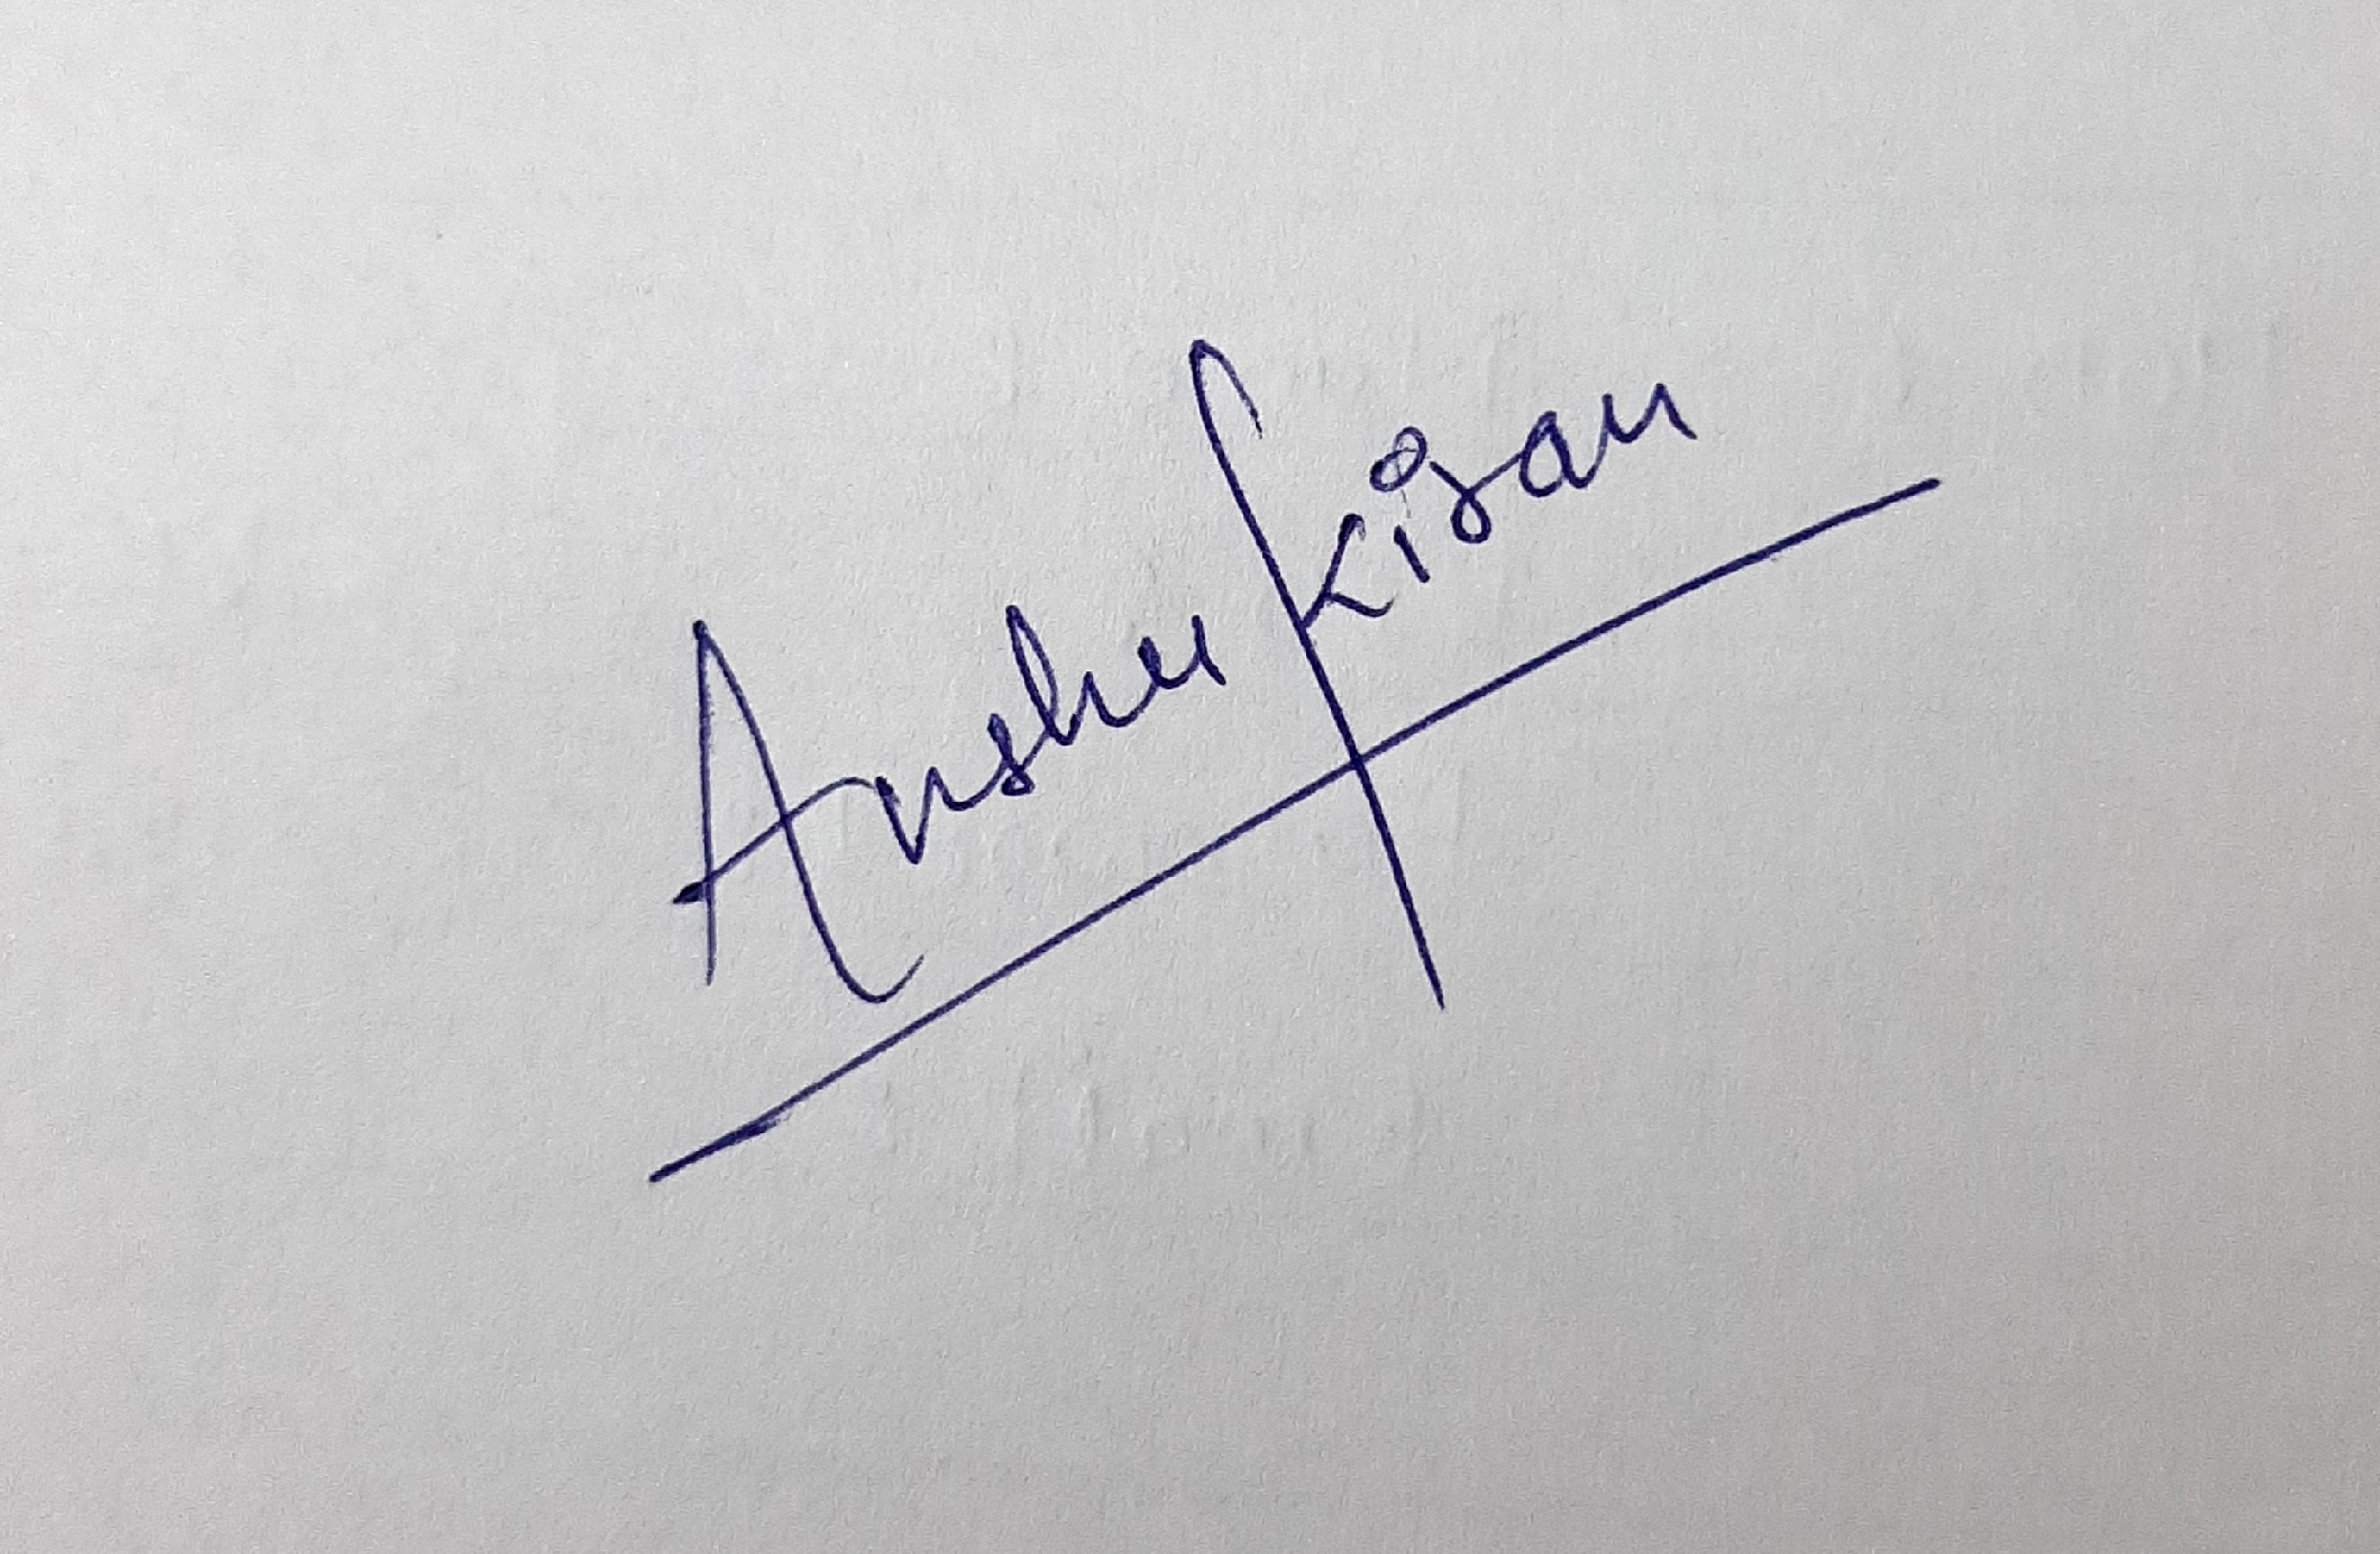 Anshu Kiran